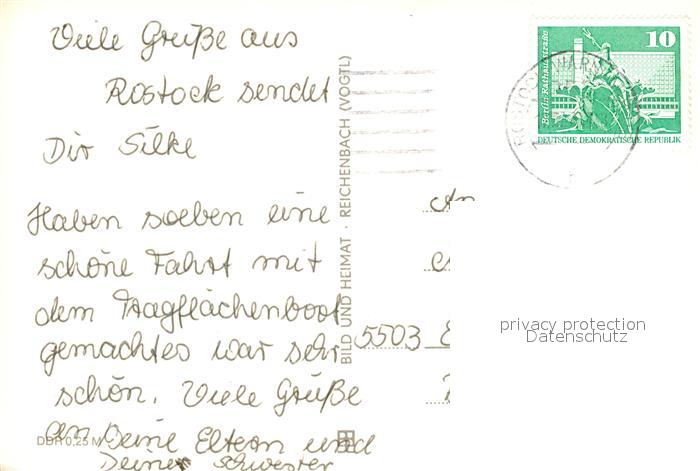 Viele Grüße aus
Rostock sendet
Dir Silke
Haben soeben eine
schöne Fahrt mit
dem Tragflächenboot
gemachtes war sehr
schön. Viele Grüße
an Deine Eltern und
Deiner Schwester
DDR 0,25 M
BILD UND HEIMAT · REICHENBACH (VOGTL)
10
Berlin, Rathausstraße
DEUTSCHE DEMOKRATISCHE REPUBLIK
An
5503
privacy protection
Datenschutz